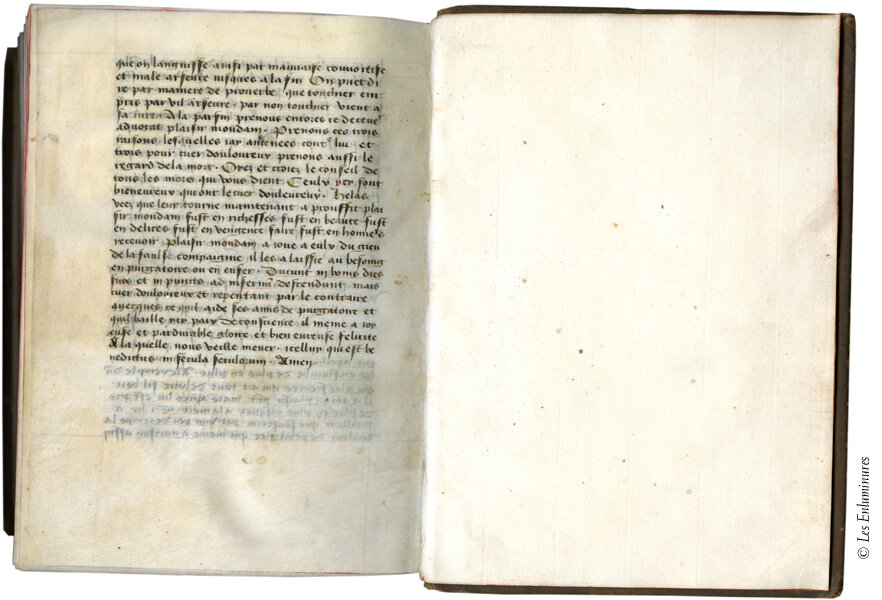 que on languisse ainsi par mauvaise couvoitise
et male arseure jusques a la fin On puet di
re par maniere de proverbe que touchier em
pris par vil arseure par non touchier vient a
sa cure. A la par fin prenons encores ce deceveur
advocat plaisir mondain. Prenons ces trois
raisons lesquelles jay avancees contre lui et
trois pour cuer douloureux prenons aussi le
regard de la mort. Oyez et croiez le conseil de
tous les mors qui vous dient Ceulx ycy sont
bieneureux qui ont le cuer douleureux. Helas
veez que leur tourne maintenant a prouffit plai
sir mondain fust en richesses fust en beaute fust
en delices fust en vengence faire fust en honneurs
recevoir. Plaisir mondain a joue a eulx du gieu
de la faulse compaignie il les a laissie au besoing
en purgatoire ou en enfer. Ducunt in bonis dies
suos et in puncto ad infernum descendunt mais
cuer douloureux et repentant par le contraire
quecques ce quil aide ses amis de purgatoire et
quil baille ycy paix de conscience il meine a joy
euse et pardurable gloire et bieneureuse felicite
A la quelle nous veille mener icelluy qui est be
nedictus in secula seculorum. Amen
© Les Enluminures